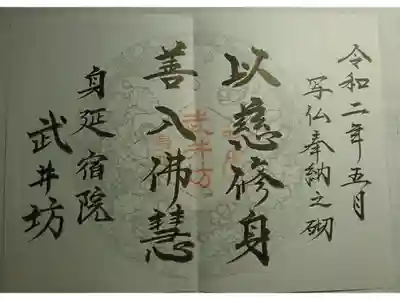 令和二年五月
写仏奉納之砌
以慈修身
善入佛慧
身延宿院
武井坊
武井坊